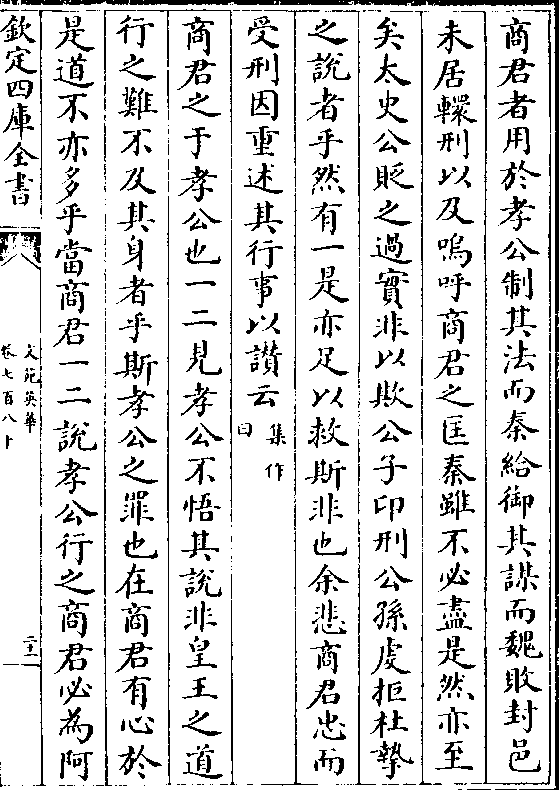 商君者用於孝公制其法而秦給御其謀而魏敗封邑
未居轘刑以及嗚呼商君之匡秦雖不必盡是然亦至
矣太史公貶之過實非以欺公子卬刑公孫虔拒杜摯
之說者乎然有一是亦足以救斯非也余悲商君忠而
受刑因重述其行事以讃云集作曰
商君之于孝公也一二見孝公不悟其說非皇王之道
行之難不及其身者乎斯孝公之罪也在商君有心於
是道不亦多乎當商君一二說孝公行之商君必為阿
欽定四庫全書
文苑英華
卷七百八十
二十二